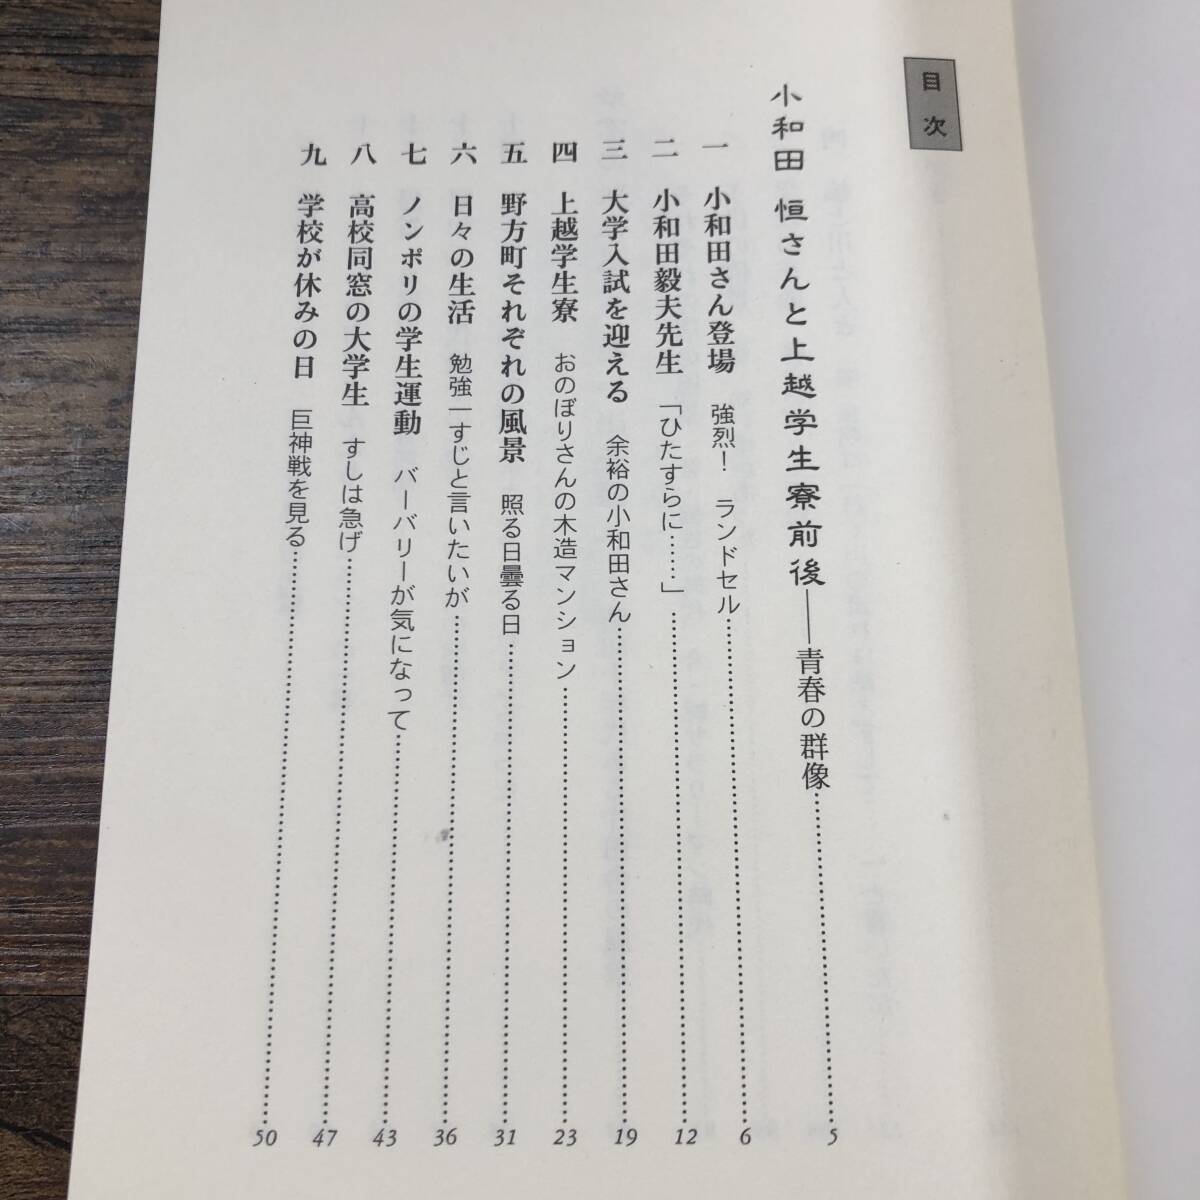 目次
小和田 恒さんと上越学生寮前後——青春の群像……5
一 小和田さん登場 強烈！ ランドセル……6
二 小和田毅夫先生 「ひたすらに……」……12
三 大学入試を迎える 余裕の小和田さん……19
四 上越学生寮 おのぼりさんの木造マンション……23
五 野方町それぞれの風景 照る日曇る日……31
六 日々の生活 勉強一すじと言いたいが……36
七 ノンポリの学生運動 バーバリーが気になって……43
八 高校同窓の大学生 すしは急げ……47
九 学校が休みの日 巨神戦を見る……50